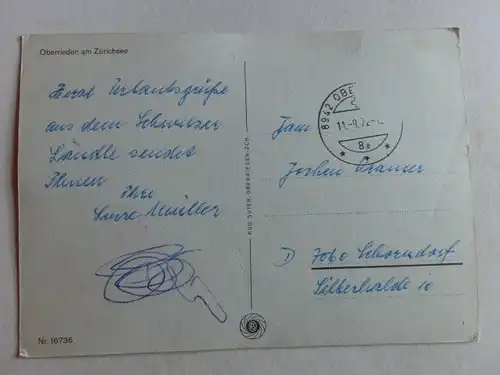 Oberrieden am Zürichsee
Herzl. Urlaubsgrüße
aus dem Schweizer
Ländle sendet
Ihnen
Ihre
Müller
Nr. 16736
RUD. SUTER, OBERRIEDEN-ZCH.
8942 OBE
11.-8.7
8a
Fam.
Jochen Kramer
D 7060 Schorndorf
Silberhalde 10